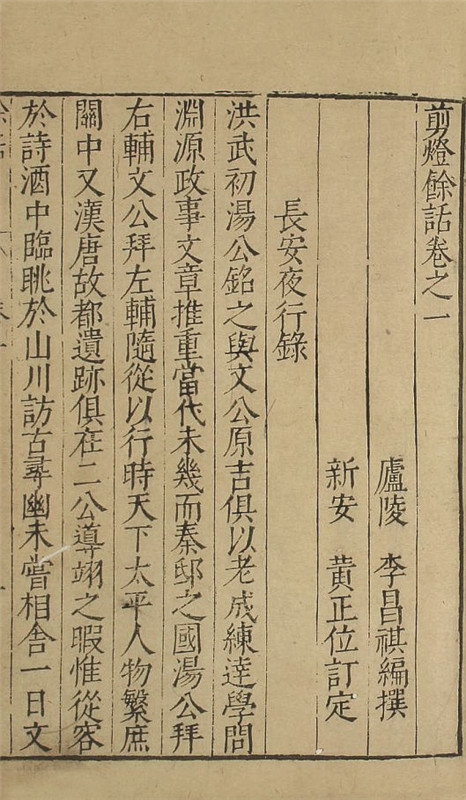 剪燈餘話卷之一
廬陵　李昌祺編撰
新安　黄正位訂定
長安夜行錄
洪武初湯公銘之與文公原吉俱以老成練達學問
淵源政事文章推重當代未幾而秦邸之國湯公拜
右輔文公拜左輔隨從以行時天下太平人物繁庶
關中又漢唐故都遺跡俱在二公導翊之暇惟從容
於詩酒中臨眺於山川訪古尋幽未嘗相舍一日文